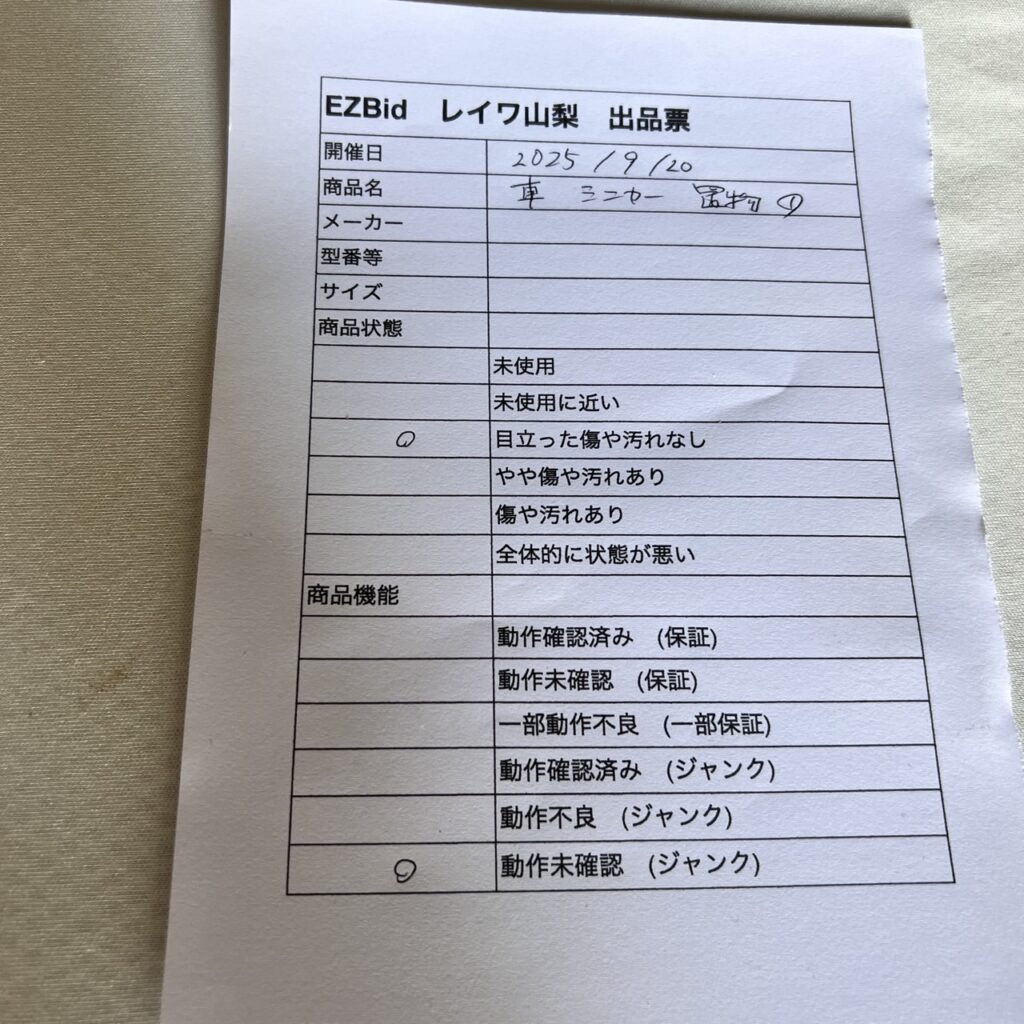 EZBid レイワ山梨 出品票
開催日 2025/9/20
商品名 車 ミニカー 置物 ①
メーカー
型番等
サイズ
商品状態
未使用
未使用に近い
○ 目立った傷や汚れなし
やや傷や汚れあり
傷や汚れあり
全体的に状態が悪い
商品機能
動作確認済み (保証)
動作未確認 (保証)
一部動作不良 (一部保証)
動作確認済み (ジャンク)
動作不良 (ジャンク)
○ 動作未確認 (ジャンク)